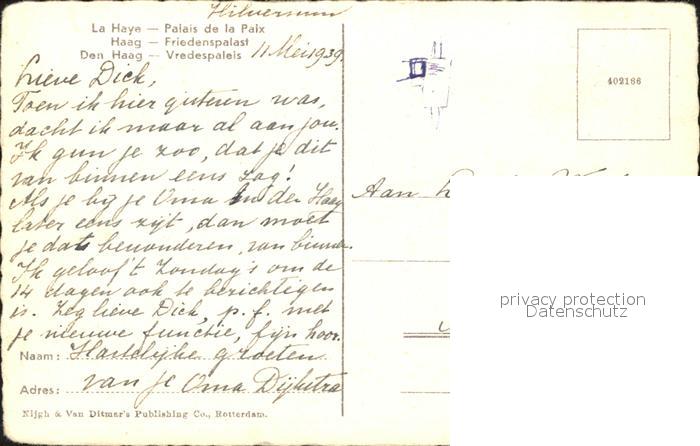 Hilversum
La Haye — Palais de la Paix
Haag — Friedenspalast
Den Haag — Vredespaleis
11 Mei 1939.
Lieve Dick,
Toen ik hier gisteren was,
dacht ik maar al aan jou.
Ik gun je zoo, dat je dit
van binnen eens zag!
Als je bij je Oma in den Haag
later eens zijt, dan moet
je dat bewonderen, van binnen.
Ik geloof 't Zondag's om de
14 dagen ook te bezichtigen
is. Zeg lieve Dick, p.f. met
je nieuwe functie, fijn hoor.
Naam: Hartelijke groeten
van je Oma Dijkstra
Adres:
Nijgh & Van Ditmar's Publishing Co., Rotterdam.
402186
Aan
privacy protection
Datenschutz